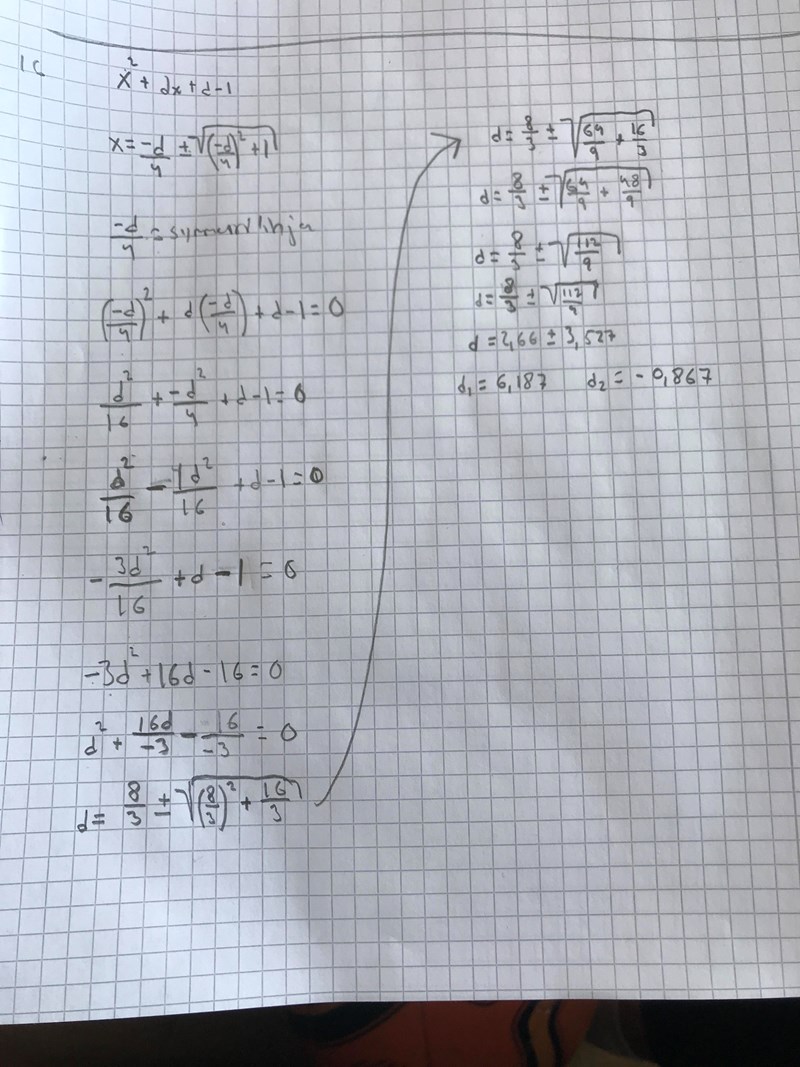 1c
x² + dx + d-1
x = -d/4 ± √((-d/4)² + 1)
-d/4 = symmetrilinje
(-d/4)² + d(-d/4) + d-1 = 0
d²/16 + -d²/4 + d-1 = 0
d²/16 - 4d²/16 + d-1 = 0
- 3d²/16 + d - 1 = 0
-3d² + 16d - 16 = 0
d² + 16d/-3 - 16/-3 = 0
d = 8/3 ± √((8/3)² + 16/3)
d = 8/3 ± √(64/9 + 16/3)
d = 8/3 ± √(64/9 + 48/9)
d = 8/3 ± √(112/9)
d = 8/3 ± √(112/9)
d = 2,66 ± 3,527
d₁ = 6,187 d₂ = -0,867